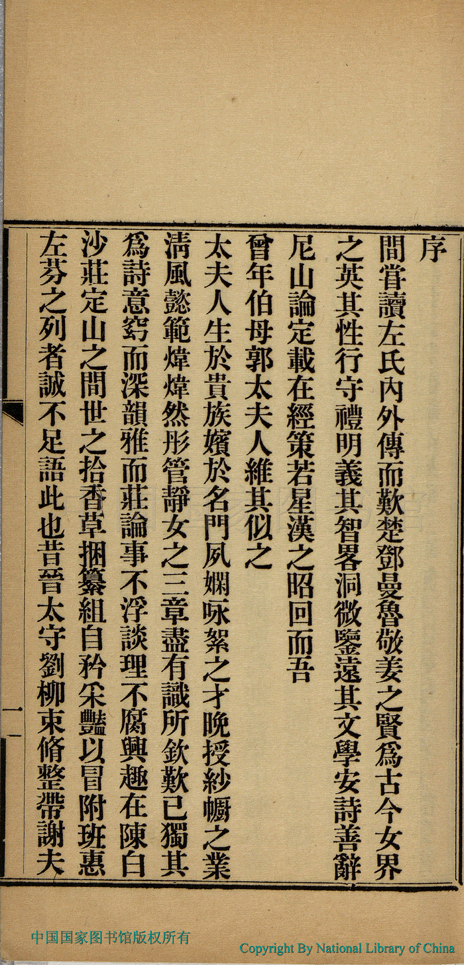 序
間嘗讀左氏內外傳而歎楚鄧曼魯敬姜之賢爲古今女界
之英其性行守禮明義其智畧洞微鑒遠其文學安詩善辭
尼山論定載在經策若星漢之昭回而吾
曾年伯母郭太夫人維其似之
太夫人生於貴族嬪於名門夙嫻咏絮之才晚授紗幮之業
淸風懿範煒煒然彤管靜女之三章盡有識所欽歎已獨其
爲詩意窈而深韻雅而莊論事不浮談理不腐興趣在陳白
沙莊定山之間世之拾香草捆纂組自矜采豔以冒附班惠
左芬之列者誠不足語此也昔晉太守劉柳束脩整帶謝夫
一
中国国家图书馆版权所有
Copyright By National Library of China